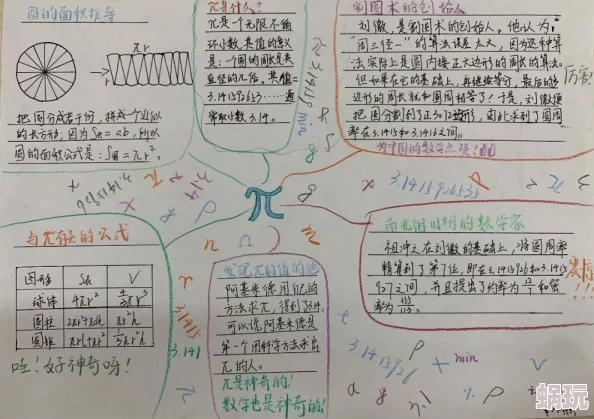 圆的面积推导
πr
r
把圆分成若干份，拼成一个近似
的长方形，因为S长=ab，所以
圆的面积公式是：S圆=πr²。
π是什么？
π是一个无限不循
环小数，其值的含义
是：一个圆的周长是其
直径的几倍，其值=
3.1415926
常取小数3.14。
割圆术的创始人
刘徽，是割圆术的创始人。他认为，
"周三径一"的算法误差太大，因为这种算
法实际上是圆内接正六边形的周长的算法。
但如果在它的基础上，再继续等分，最后的多
边形的周长就和圆周相等了！于是，刘徽便
把圆分割到了正3072边形，由此求到了圆周
率在3.1415和3.1416之间。
为中国的数学点赞！
厉害！
π
3.1415926
min
3.14
3.1415926535
与π有关的公式
图形 S表 V
球体 4πr² 4/3πr³
圆柱 πr²h
圆锥 1/3πr²h
哇！好神奇呀！
发现π的值的他
阿基米德用他的
方法求π，得到了3.14，
可以说，阿基米德是
第一个用科学方法求出
π的人。
π是神奇的！
数学也是神奇的！
南北朝时期的数学家
祖冲之在刘徽的基础上，将圆周率
精算到了第7位，即在3.1415926和3.1415
927之间，并且提出了约率为22/7和密
率为355/113。
3.1415
3.141
3.1415926
+ min
V
蜗玩